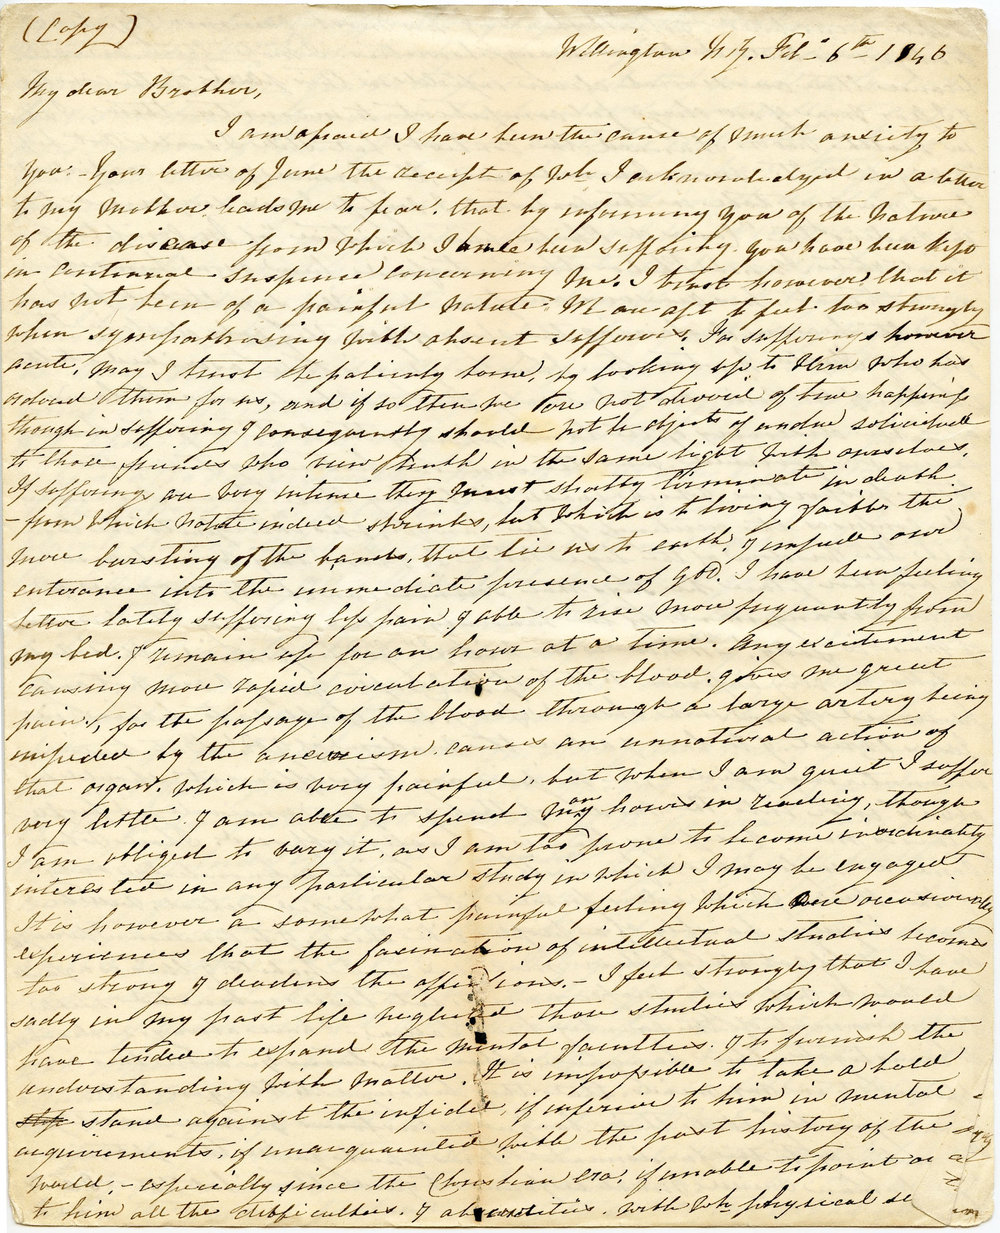 (Copy)
Wellington N.Z. Feb. 6th 1846
My dear Brother,
I am afraid I have been the cause of much anxiety to
you. – Your letter of June the receipt of wh. I acknowledged in a letter
to my Mother leads me to fear, that by informing you of the nature
of the disease from which I have been suffering you have been kept
in continual suspense concerning me. I trust however that it
has not been of a painful nature. We are apt to feel too strongly
when sympathising with absent sufferers. For sufferings however
acute, may I trust be patiently borne, by looking up to Him who has
ordered them for us, and if so then we are not devoid of true happiness
though in suffering & consequently should not be objects of undue solicitude
to those friends who view truth in the same light with ourselves.
If sufferings are very intense they must shortly terminate in death
– from which nature indeed shrinks, but which is to living faith the
mere bursting of the bands, that tie us to earth, & impede our
entrance into the immediate presence of God. I have been feeling
better lately suffering less pain & able to rise more frequently from
my bed. & remain up for an hour at a time. Any excitement
causing more rapid circulation of the blood, gives me great
pain, for the passage of the blood through a large artery being
impeded by the aneurism causes an unnatural action of
that organ, which is very painful, but when I am quiet I suffer
very little. & am able to spend many hours in reading, though
I am obliged to vary it, as I am too prone to become inordinately
interested in any particular study in which I may be engaged
It is however a somewhat painful feeling which one occasionally
experiences that the fascination of intellectual studies becomes
too strong & deadens the affections. – I feel strongly that I have
sadly in my past life neglected those studies which would
have tended to expand the mental faculties. & to furnish the
understanding with matter. It is impossible to take a bold
stand against the infidel, if inferior to him in mental
acquirements, if unacquainted with the past history of the
world, – especially since the Christian era, if unable to point out
to him all the difficulties. & absurdities. with wh. physical